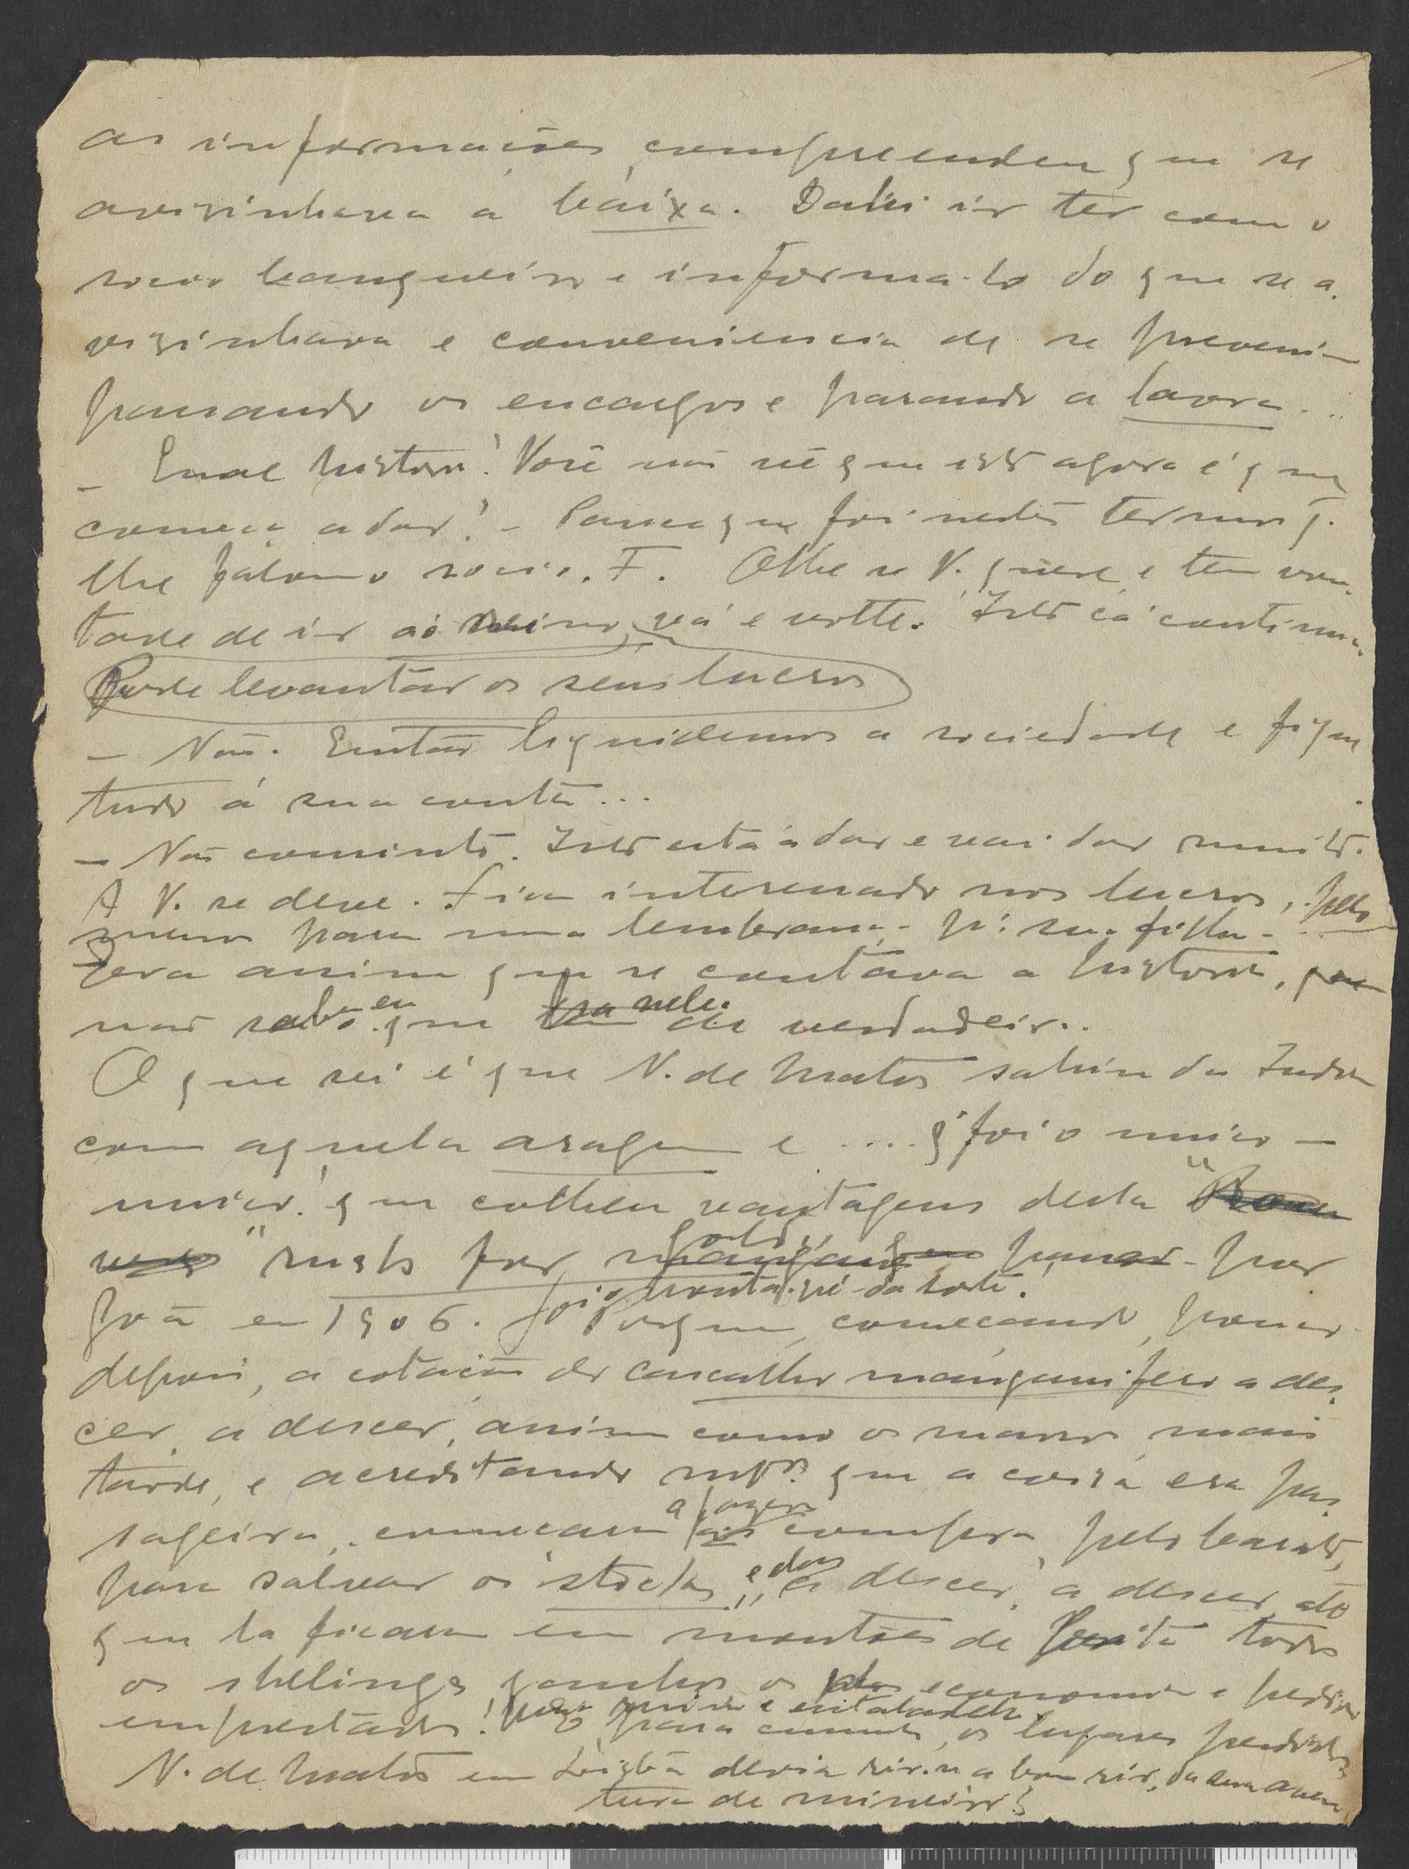 as informações compreendeu que se
avizinhava a baixa. Dahi ir ter com o
socio banqueiro e informa-lo do que se a-
vizinhava e conveniencia de se prevenir
passando os encargos e parando a lavra...
- Qual historia! Você não vê que isto agora é que
começa a dar! - Parece que foi nestes termos q.
lhe falou o socio. F. Olhe se V. quere e tem von-
tade de ir ao Reino, vá e volte. Isto cá continua.
Pode levantar os seus lucros
- Não. Então liquidemos a sociedade e fique
tudo á sua conta...
- Não consinto. Isto está a dar e vai dar muito.
A V. se deve. Fica interessado nos lucros, pelo
menos para uma lembrança p.ª sua filha.
Era assim que se contava a historia,
não sabendo eu que ha nela de verdadeiro..
O que sei é que N. de Matos sahiu da India
com aquela aragem e .... q' foi o unico -
unico! que colheu vantagens desta "
" rush for gold, por
Goa em 1906. Foi o ponta-pé da sorte. Porque, começando, pouco
depois, a cotação do cascalho manganifero a des-
cer, a descer, assim como os mares mais
tarde, e acreditando mt.os que a coisa era pas-
sageira, começaram a fazer compra, pelo barato,
para salvar os stocks, e dos a descer, a descer até
que lá ficaram em montões de todos
os shelings ganhos, os das economias e pedidos
emprestados! para cumulo, os lugares perdidos
N. de Matos em Lisboa devia rir-se a bom rir, da sua aven-
tura de mineiro!